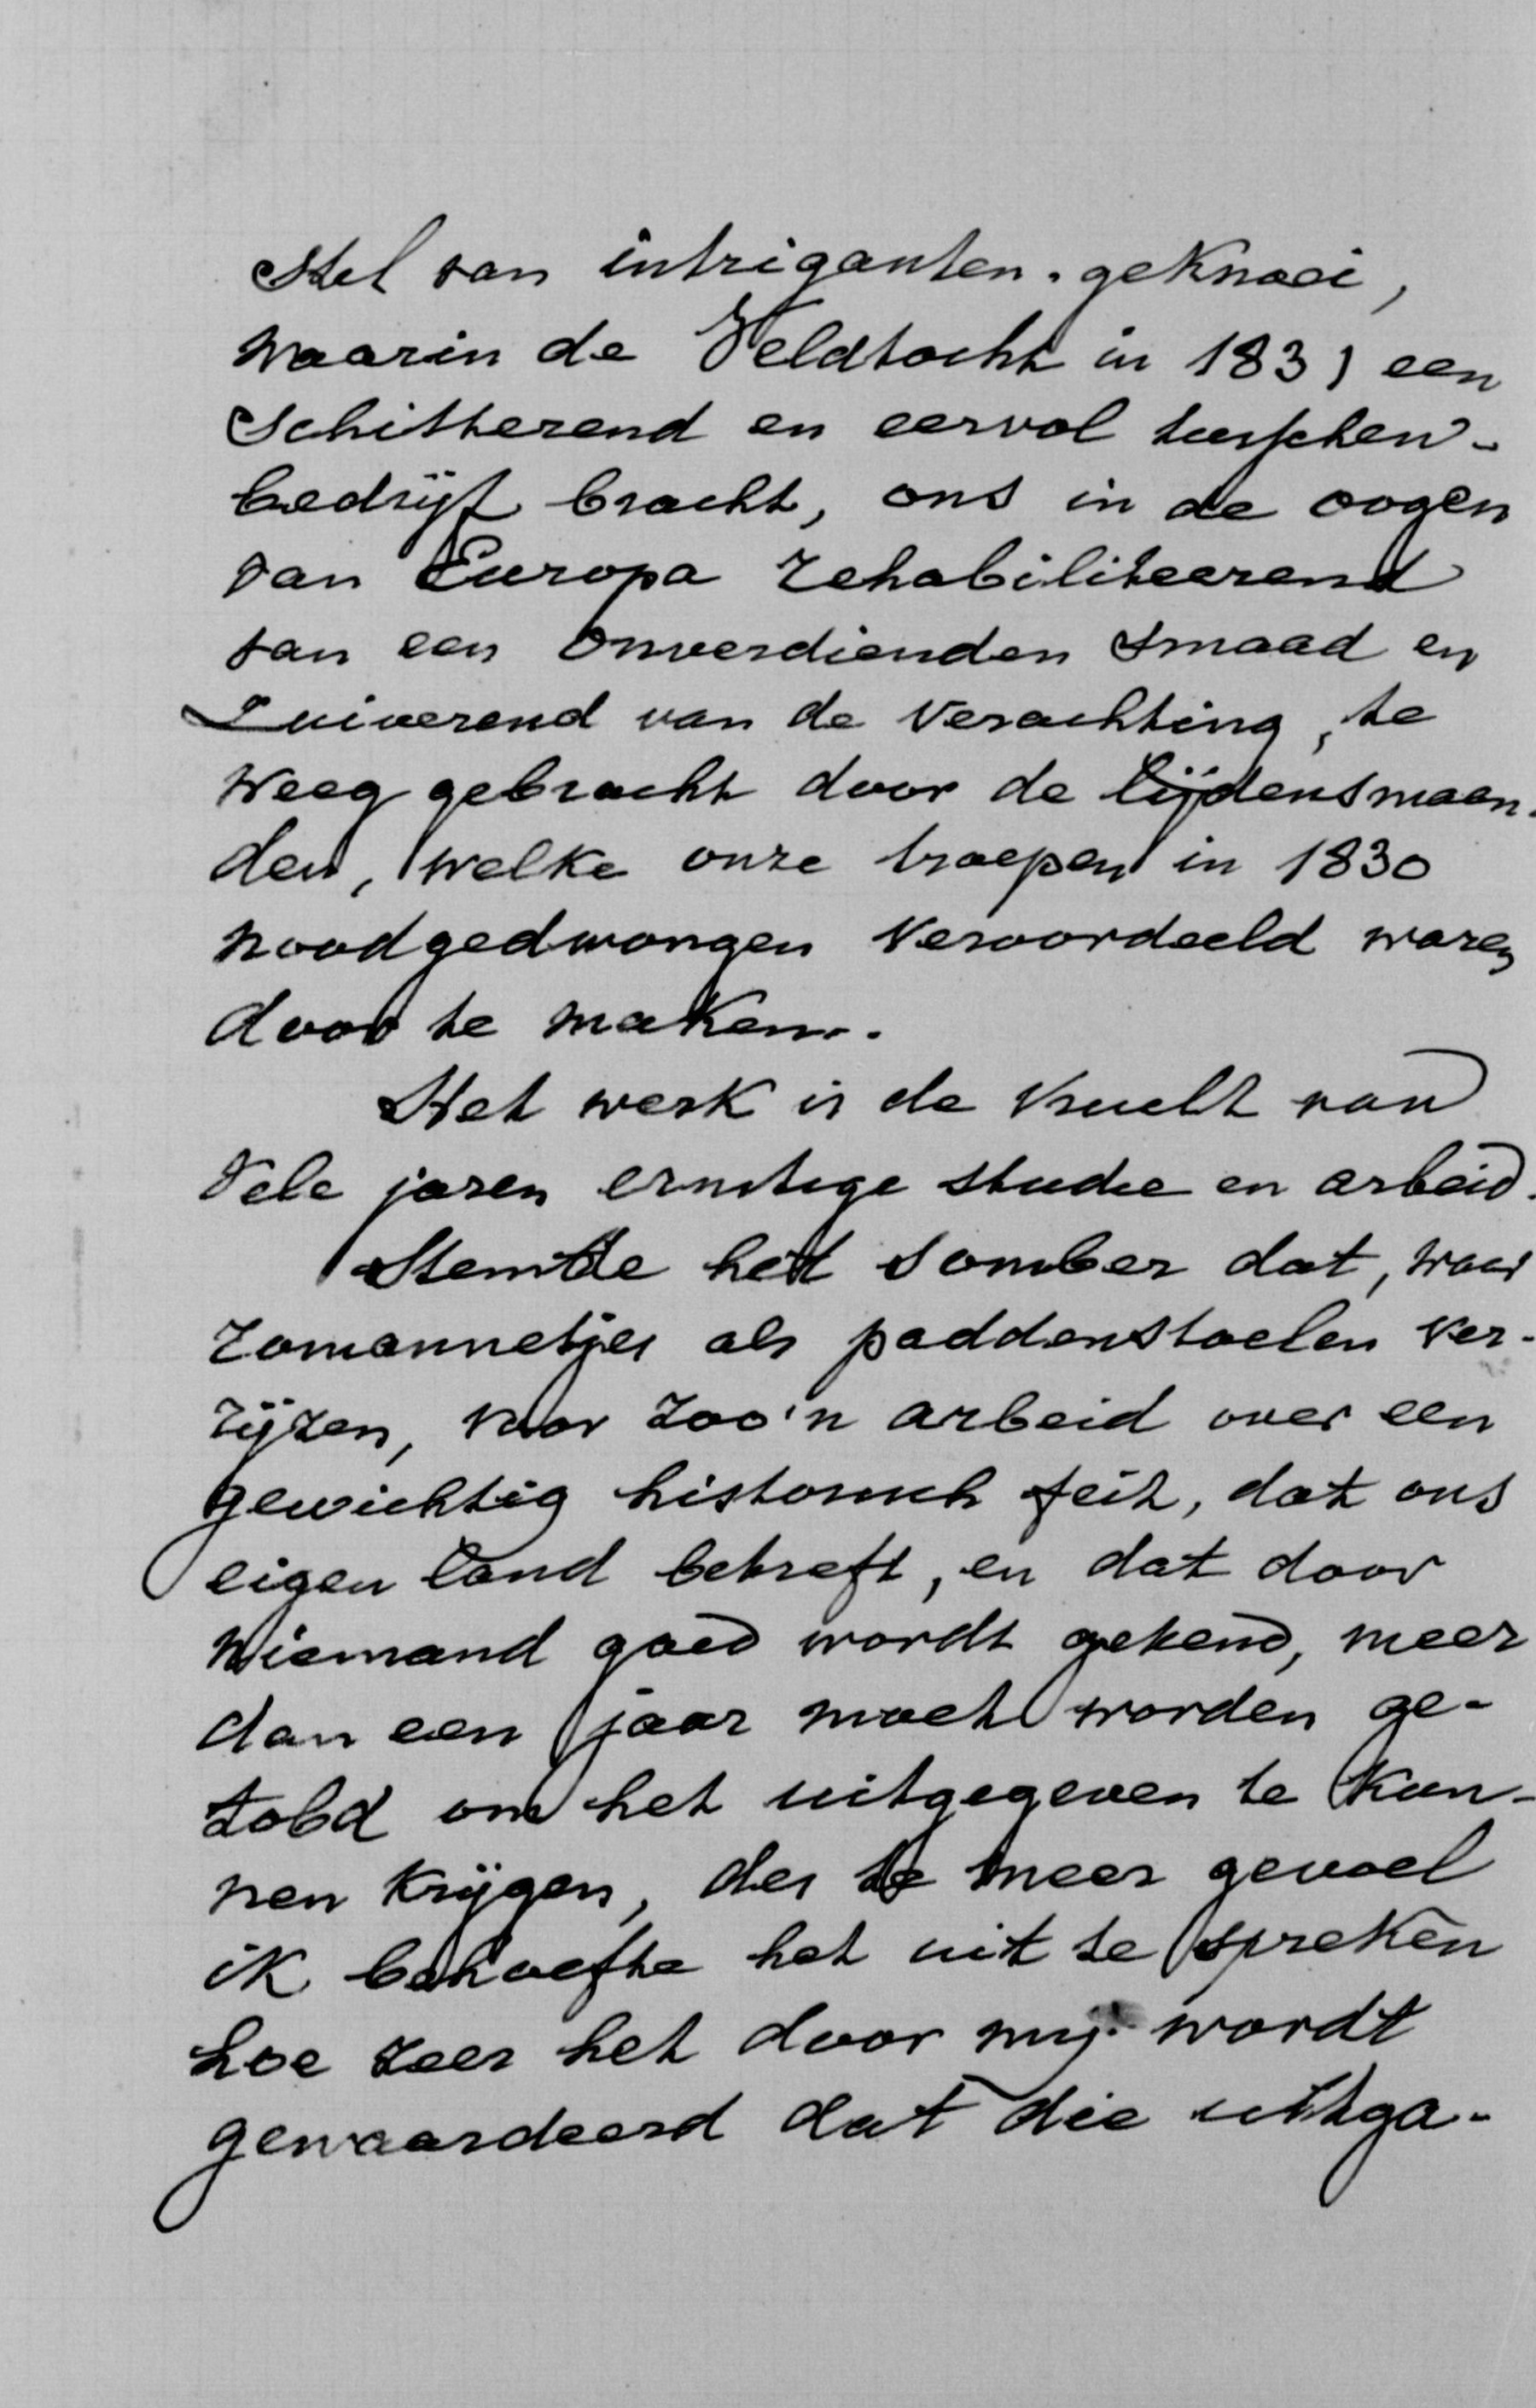 stel van intriganten-geknoei,
waarin de Veldtocht in 1831 een
schitterend en eervol tusschen-
bedrijf bracht, ons in de oogen
van Europa rehabiliteerend
van een onverdienden smaad en
zuiverend van de verachting, te
weeg gebracht door de lijdensmaan-
den, welke onze troepen in 1830
noodgedwongen veroordeeld waren
door te maken.
Het werk is de vrucht van
vele jaren ernstige studie en arbeid.
Stemde het somber dat, waar
romannetjes als paddenstoelen ver-
rijzen, voor zoo'n arbeid over een
gewichtig historisch feit, dat ons
eigen land betreft, en dat door
niemand goed wordt gekend, meer
dan een jaar moest worden ge-
tobd om het uitgegeven te kun-
nen krijgen, des te meer gevoel
ik behoefte het uit te spreken
hoe zeer het door mij wordt
gewaardeerd dat die uitga-